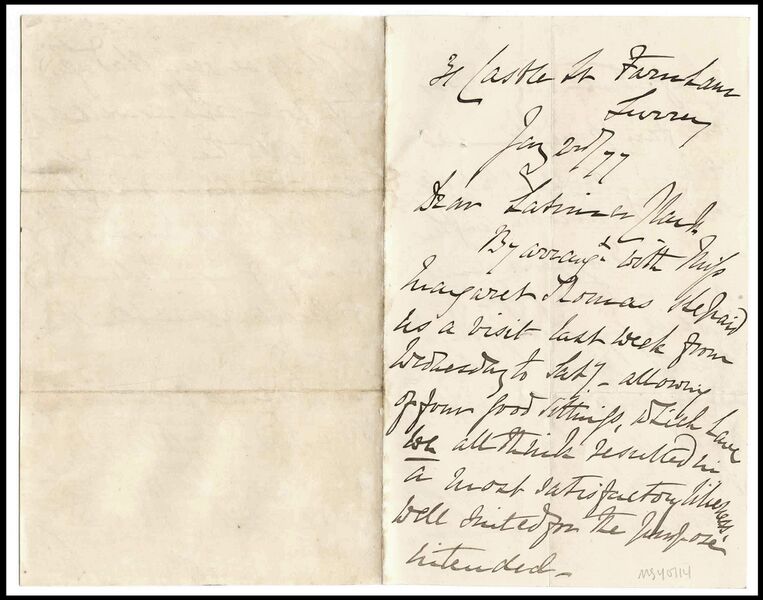 31 Castle St Farnham
Surrey
Jany 23rd/77
Dear Latimer Clark
By arrangt with Miss
Margaret Thomas she paid
us a visit last week from
Wednesday to Saty. - allowing
of four good sittings, which have
we all think resulted in
a most satisfactory likeness
well suited for the purpose
intended -
MS40/14